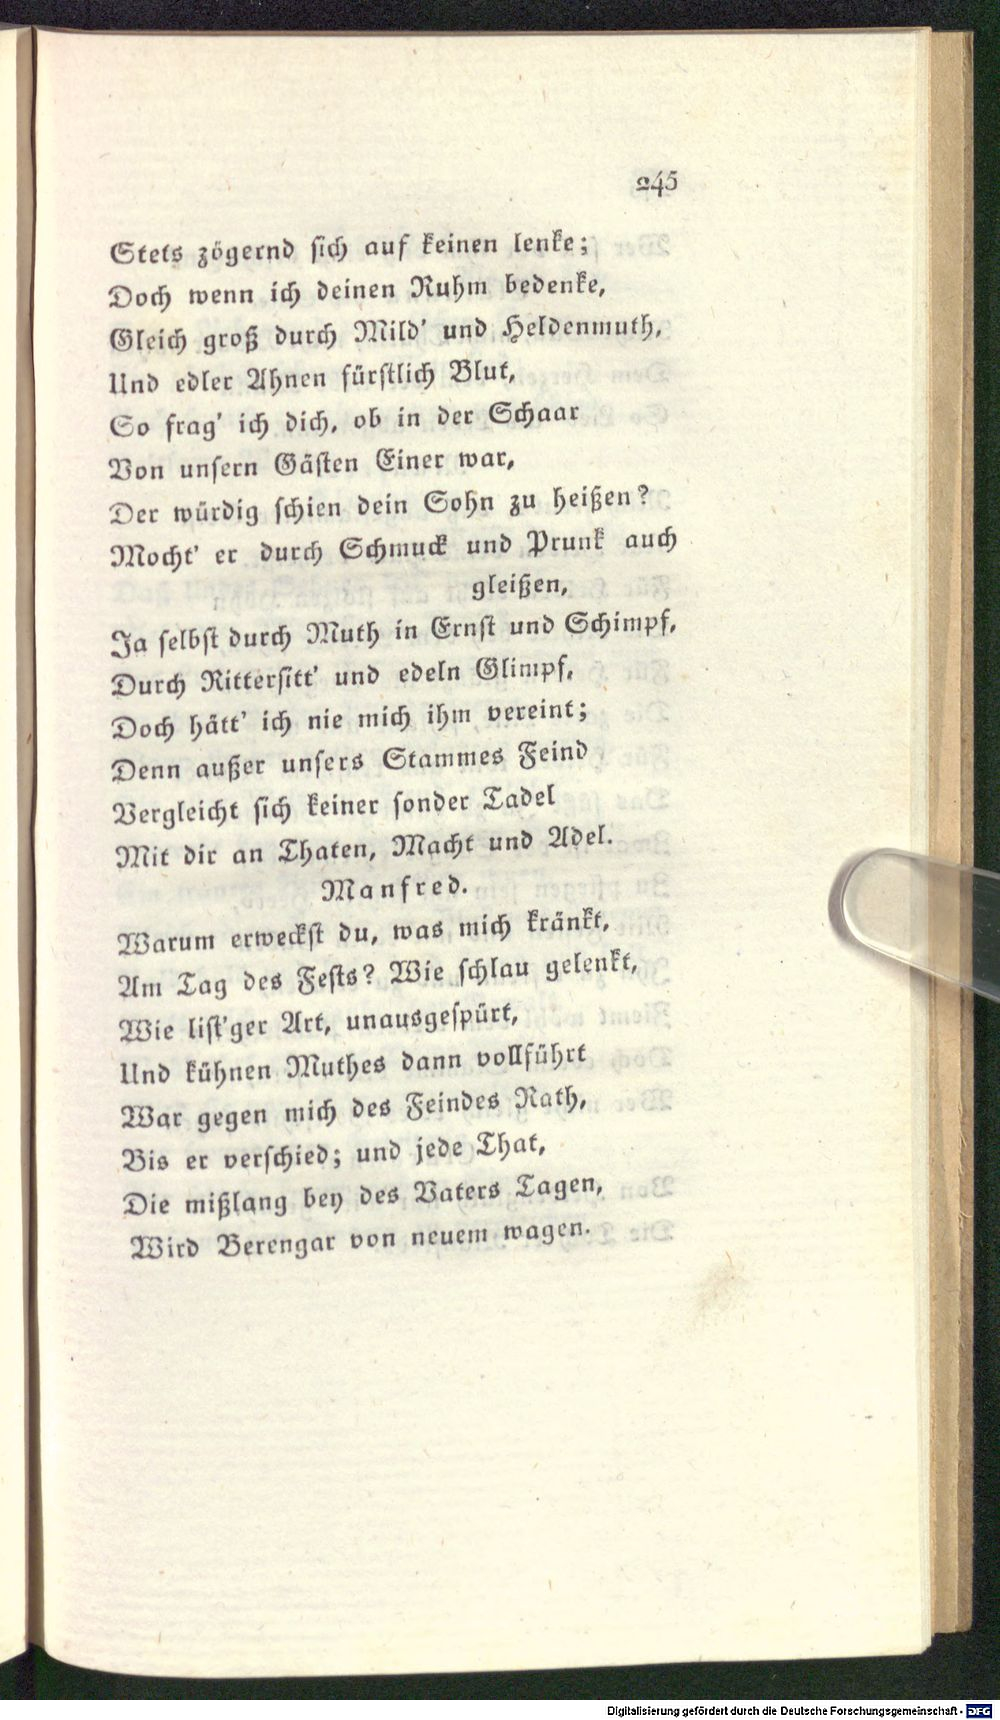 245
Stets zögernd sich auf keinen lenke;
Doch wenn ich deinen Ruhm bedenke,
Gleich groß durch Mild' und Heldenmuth,
Und edler Ahnen fürstlich Blut,
So frag' ich dich, ob in der Schaar
Von unsern Gästen Einer war,
Der würdig schien dein Sohn zu heißen?
Mocht' er durch Schmuck und Prunk auch
gleißen,
Ja selbst durch Muth in Ernst und Schimpf,
Durch Rittersitt' und edeln Glimpf,
Doch hätt' ich nie mich ihm vereint;
Denn außer unsers Stammes Feind
Vergleicht sich keiner sonder Tadel
Mit dir an Thaten, Macht und Adel.
Manfred.
Warum erweckst du, was mich kränkt,
Am Tag des Fests? Wie schlau gelenkt,
Wie list'ger Art, unausgespürt,
Und kühnen Muthes dann vollführt
War gegen mich des Feindes Rath,
Bis er verschied; und jede That,
Die mißlang bey des Vaters Tagen,
Wird Berengar von neuem wagen.
Digitalisierung gefördert durch die Deutsche Forschungsgemeinschaft - DFG